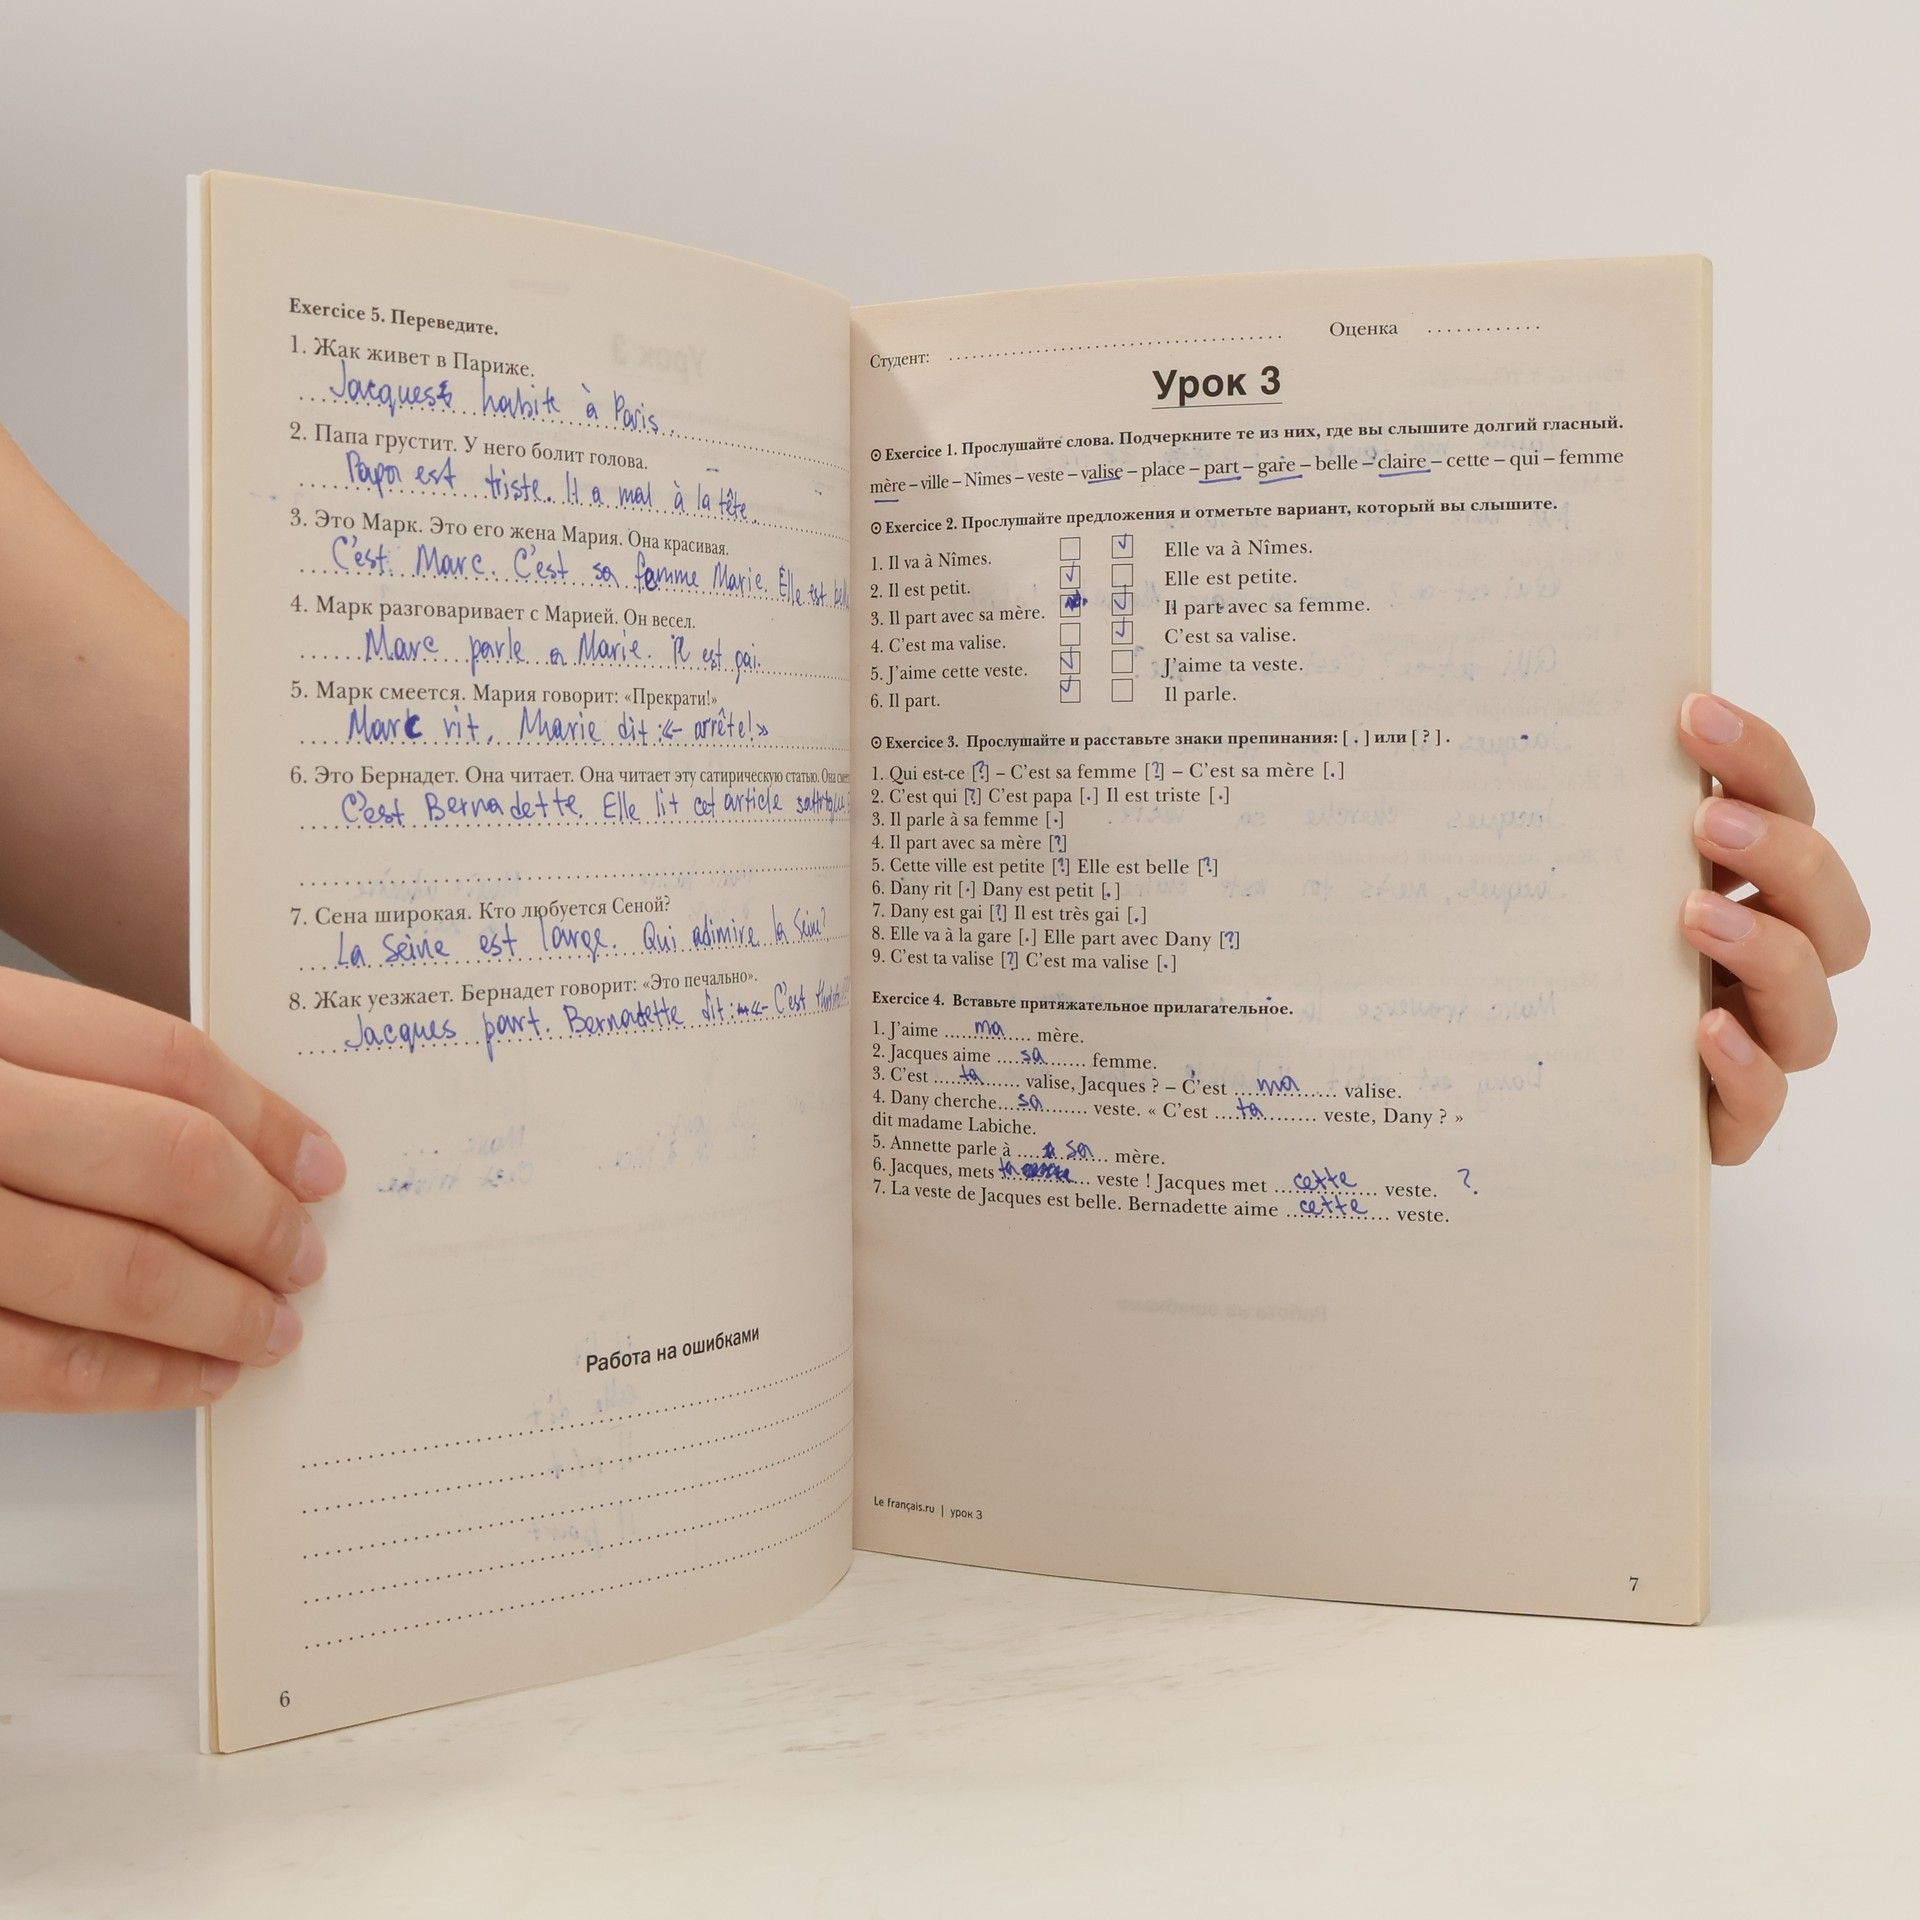 Exercice 5. Переведите.
1. Жак живет в Париже.
Jacques habite à Paris.
2. Папа грустит. У него болит голова.
Papa est triste. Il a mal à la tête.
3. Это Марк. Это его жена Мария. Она красивая.
C'est Marc. C'est sa femme Marie. Elle est
4. Марк разговаривает с Марией. Он весел.
Marc parle a Marie. Il est gai.
5. Марк смеется. Мария говорит: «Прекрати!»
Marc rit, Marie dit :«- arrête!»
6. Это Бернадет. Она читает. Она читает эту сатирическую статью. Она
C'est Bernadette. Elle lit cet article
7. Сена широкая. Кто любуется Сеной?
La Seine est large. Qui adimire la Seine?
8. Жак уезжает. Бернадет говорит: «Это печально».
Jacques part. Bernadette dit: «- C'est
Работа на ошибками
6
Студент: Оценка
Урок 3
Exercice 1. Прослушайте слова. Подчеркните те из них, где вы слышите долгий гласный.
mère – ville – Nîmes – veste – valise – place – part – gare – belle – claire – cette – qui – femme
Exercice 2. Прослушайте предложения и отметьте вариант, который вы слышите.
1. Il va à Nîmes. Elle va à Nîmes.
2. Il est petit. Elle est petite.
3. Il part avec sa mère. Il part avec sa femme.
4. C'est ma valise. C'est sa valise.
5. J'aime cette veste. J'aime ta veste.
6. Il part. Il parle.
Exercice 3. Прослушайте и расставьте знаки препинания: [ . ] или [ ? ] .
1. Qui est-ce [?] – C'est sa femme [?] – C'est sa mère [.]
2. C'est qui [?] C'est papa [.] Il est triste [.]
3. Il parle à sa femme [.]
4. Il part avec sa mère [?]
5. Cette ville est petite [?] Elle est belle [?]
6. Dany rit [.] Dany est petit [.]
7. Dany est gai [?] Il est très gai [.]
8. Elle va à la gare [.] Elle part avec Dany [?]
9. C'est ta valise [?] C'est ma valise [.]
Exercice 4. Вставьте притяжательное прилагательное.
1. J'aime ....ma.... mère.
2. Jacques aime ....sa.... femme.
3. C'est ....ta.... valise, Jacques ? – C'est ....ma.... valise.
4. Dany cherche....sa.... veste. « C'est ....ta.... veste, Dany ? »
dit madame Labiche.
5. Annette parle à ....sa.... mère.
6. Jacques, mets ta.... veste ! Jacques met ....cette.... veste. ?
7. La veste de Jacques est belle. Bernadette aime ....cette.... veste.
Le français.ru | урок 3
7